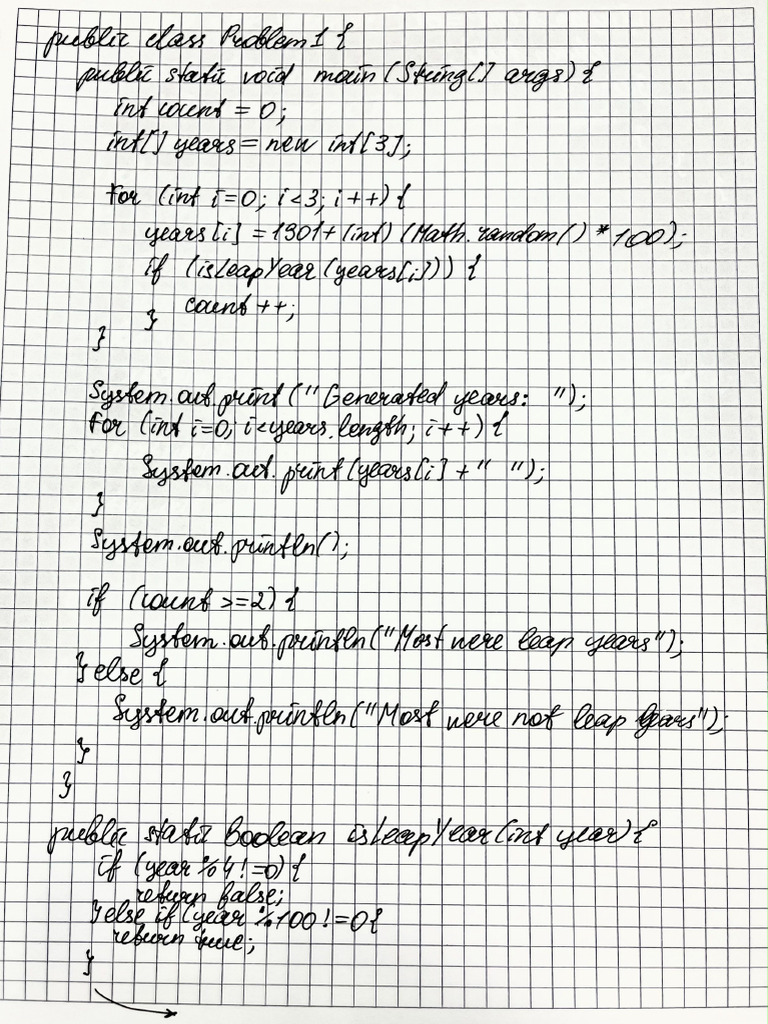 public class Problem1 {
public static void main (String[] args) {
int count = 0;
int[] years = new int[3];
for (int i=0; i<3; i++) {
years[i] = 1901 + (int) (Math.random() * 100);
if (isLeapYear (years[i])) {
count ++;
}
}
System.out.print ("Generated years: ");
for (int i=0; i<years.length; i++) {
System.out.print (years[i] + " ");
}
System.out.println();
if (count >=2) {
System.out.println("Most were leap years");
} else {
System.out.println("Most were not leap years");
}
}
public static Boolean isLeapYear(int year) {
if (year % 4 != 0) {
return false;
} else if (year % 100 != 0 {
return true;
}